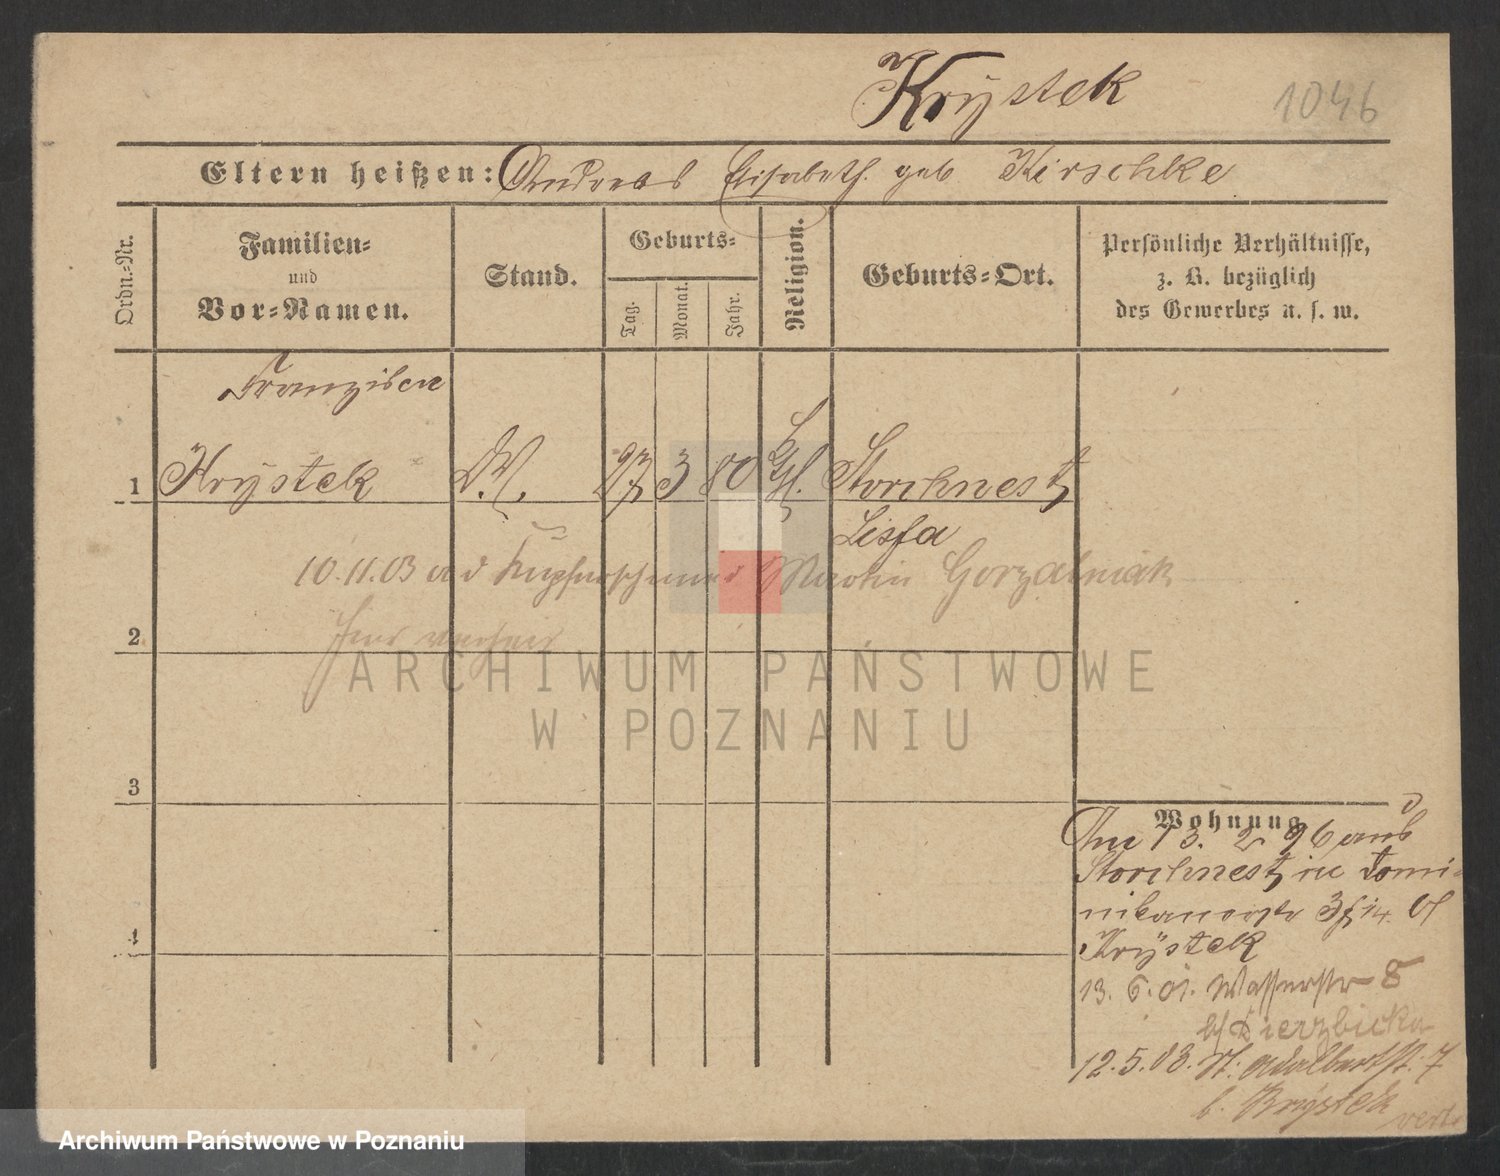 Krÿstek 1046
Eltern heißen: Andreas Elisabeth. geb Kirschke
Ordn.-Nr.
Familien-
und
Vor-Namen.
Stand.
Geburts-
Tag.
Monat.
Jahr.
Religion.
Geburts-Ort.
Persönliche Verhältnisse,
z. B. bezüglich
des Gewerbes u. s. w.
Franziska
1 Krÿstek D.M. 27 3 80 Ktfl. Storchnest
Lissa
10.11.03 a d Kupferschmied Martin Gorzelniak
hier verheir
2
ARCHIWUM PAŃSTWOWE
W POZNANIU
3
4
Wohnung
Am 13. 2 96 aus
Storchnest, in Domi-
nikanerstr 3 b/
Krÿstek
13. 6. 01. Wasserstr 8
b/ Sierzbicka
12.5.03. St. Adalbertst. 7
b. Krÿstek vert.
Archiwum Państwowe w Poznaniu